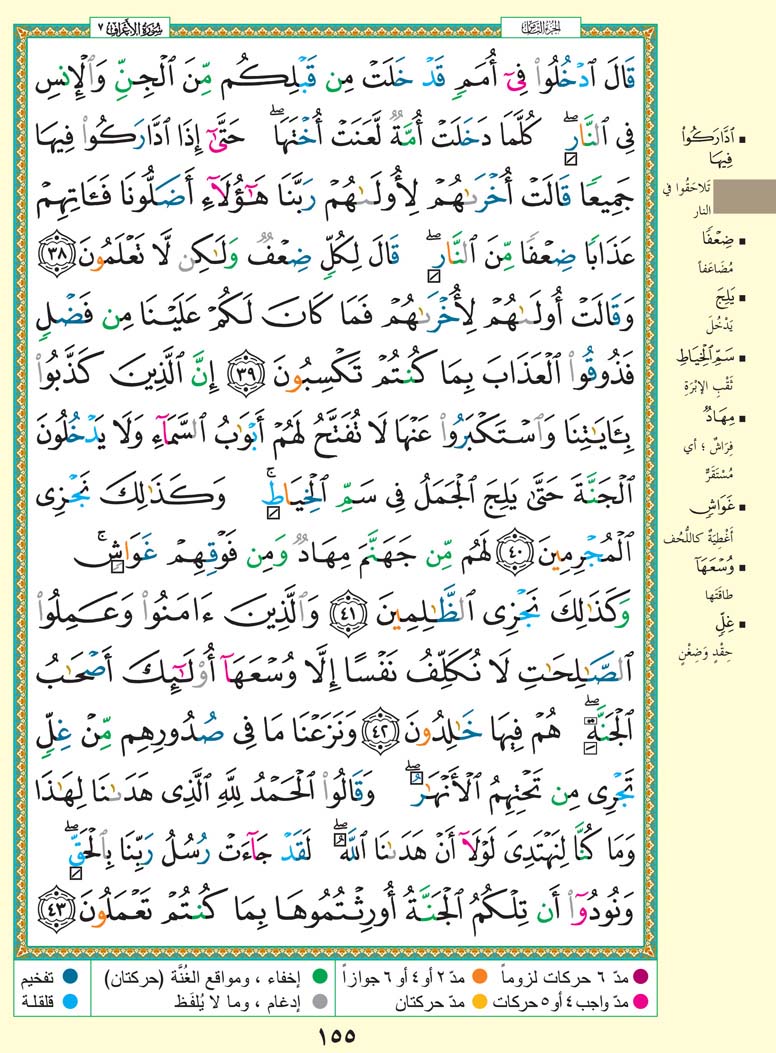 سُورَةُ الأَعْرَافِ ٧
الجُزءُ الثَّامِنُ
قَالَ ٱدْخُلُوا۟ فِىٓ أُمَمٍ قَدْ خَلَتْ مِن قَبْلِكُم مِّنَ ٱلْجِنِّ وَٱلْإِنسِ
فِى ٱلنَّارِ ۖ كُلَّمَا دَخَلَتْ أُمَّةٌ لَّعَنَتْ أُخْتَهَا ۖ حَتَّىٰٓ إِذَا ٱدَّارَكُوا۟ فِيهَا
جَمِيعًا قَالَتْ أُخْرَىٰهُمْ لِأُولَىٰهُمْ رَبَّنَا هَـٰٓؤُلَآءِ أَضَلُّونَا فَـَٔاتِهِمْ
عَذَابًا ضِعْفًا مِّنَ ٱلنَّارِ ۖ قَالَ لِكُلٍّ ضِعْفٌ وَلَـٰكِن لَّا تَعْلَمُونَ ٣٨
وَقَالَتْ أُولَىٰهُمْ لِأُخْرَىٰهُمْ فَمَا كَانَ لَكُمْ عَلَيْنَا مِن فَضْلٍ
فَذُوقُوا۟ ٱلْعَذَابَ بِمَا كُنتُمْ تَكْسِبُونَ ٣٩ إِنَّ ٱلَّذِينَ كَذَّبُوا۟
بِـَٔايَـٰتِنَا وَٱسْتَكْبَرُوا۟ عَنْهَا لَا تُفَتَّحُ لَهُمْ أَبْوَٰبُ ٱلسَّمَآءِ وَلَا يَدْخُلُونَ
ٱلْجَنَّةَ حَتَّىٰ يَلِجَ ٱلْجَمَلُ فِى سَمِّ ٱلْخِيَاطِ ۚ وَكَذَٰلِكَ نَجْزِى
ٱلْمُجْرِمِينَ ٤٠ لَهُم مِّن جَهَنَّمَ مِهَادٌ وَمِن فَوْقِهِمْ غَوَاشٍ ۚ
وَكَذَٰلِكَ نَجْزِى ٱلظَّـٰلِمِينَ ٤١ وَٱلَّذِينَ ءَامَنُوا۟ وَعَمِلُوا۟
ٱلصَّـٰلِحَـٰتِ لَا نُكَلِّفُ نَفْسًا إِلَّا وُسْعَهَآ أُو۟لَـٰٓئِكَ أَصْحَـٰبُ
ٱلْجَنَّةِ ۖ هُمْ فِيهَا خَـٰلِدُونَ ٤٢ وَنَزَعْنَا مَا فِى صُدُورِهِم مِّنْ غِلٍّ
تَجْرِى مِن تَحْتِهِمُ ٱلْأَنْهَـٰرُ ۖ وَقَالُوا۟ ٱلْحَمْدُ لِلَّهِ ٱلَّذِى هَدَىٰنَا لِهَـٰذَا
وَمَا كُنَّا لِنَهْتَدِىَ لَوْلَآ أَنْ هَدَىٰنَا ٱللَّهُ ۖ لَقَدْ جَآءَتْ رُسُلُ رَبِّنَا بِٱلْحَقِّ ۖ
وَنُودُوٓا۟ أَن تِلْكُمُ ٱلْجَنَّةُ أُورِثْتُمُوهَا بِمَا كُنتُمْ تَعْمَلُونَ ٤٣
▪ ٱدَّارَكُوا۟
فِيهَا
تَلَاحَقُوا في
النار
▪ ضِعْفًا
مُضَاعَفاً
▪ يَلِجَ
يَدْخُلَ
▪ سَمِّ ٱلْخِيَاطِ
ثَقْبِ الإبْرَةِ
▪ مِهَادٌ
فِرَاشٌ ؛ أي
مُسْتَقَرٌّ
▪ غَوَاشٍ
أَغْطِيَةٌ كاللُّحُف
▪ وُسْعَهَآ
طاقَتَها
▪ غِلٍّ
حِقْدٍ وَضِغْنٍ
مدّ ٦ حركات لزوماً ● مدّ ٢ أو ٤ أو ٦ جوازاً ● إخفاء ، ومواقع الغُنَّة (حركتان) ● تفخيم
مدّ واجب ٤ أو ٥ حركات ● مدّ حركتان ● إدغام ، وما لا يُلفَظ ● قلقلة
١٥٥